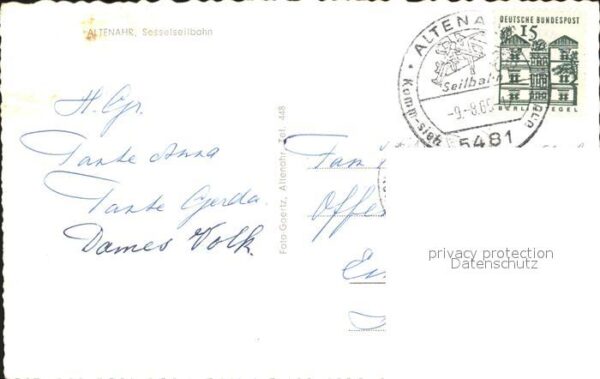 ALTENAHR, Sesselseilbahn
H. Gr.
Tante Anna
Tante Gerda
Dames Volk.
Foto Goertz, Altenahr, Tel. 448
ALTENA
Seilbahn
-9.-8.65
5481
DEUTSCHE BUNDESPOST
15
BERLIN TEGEL
Fam
Offe
privacy protection
Datenschutz